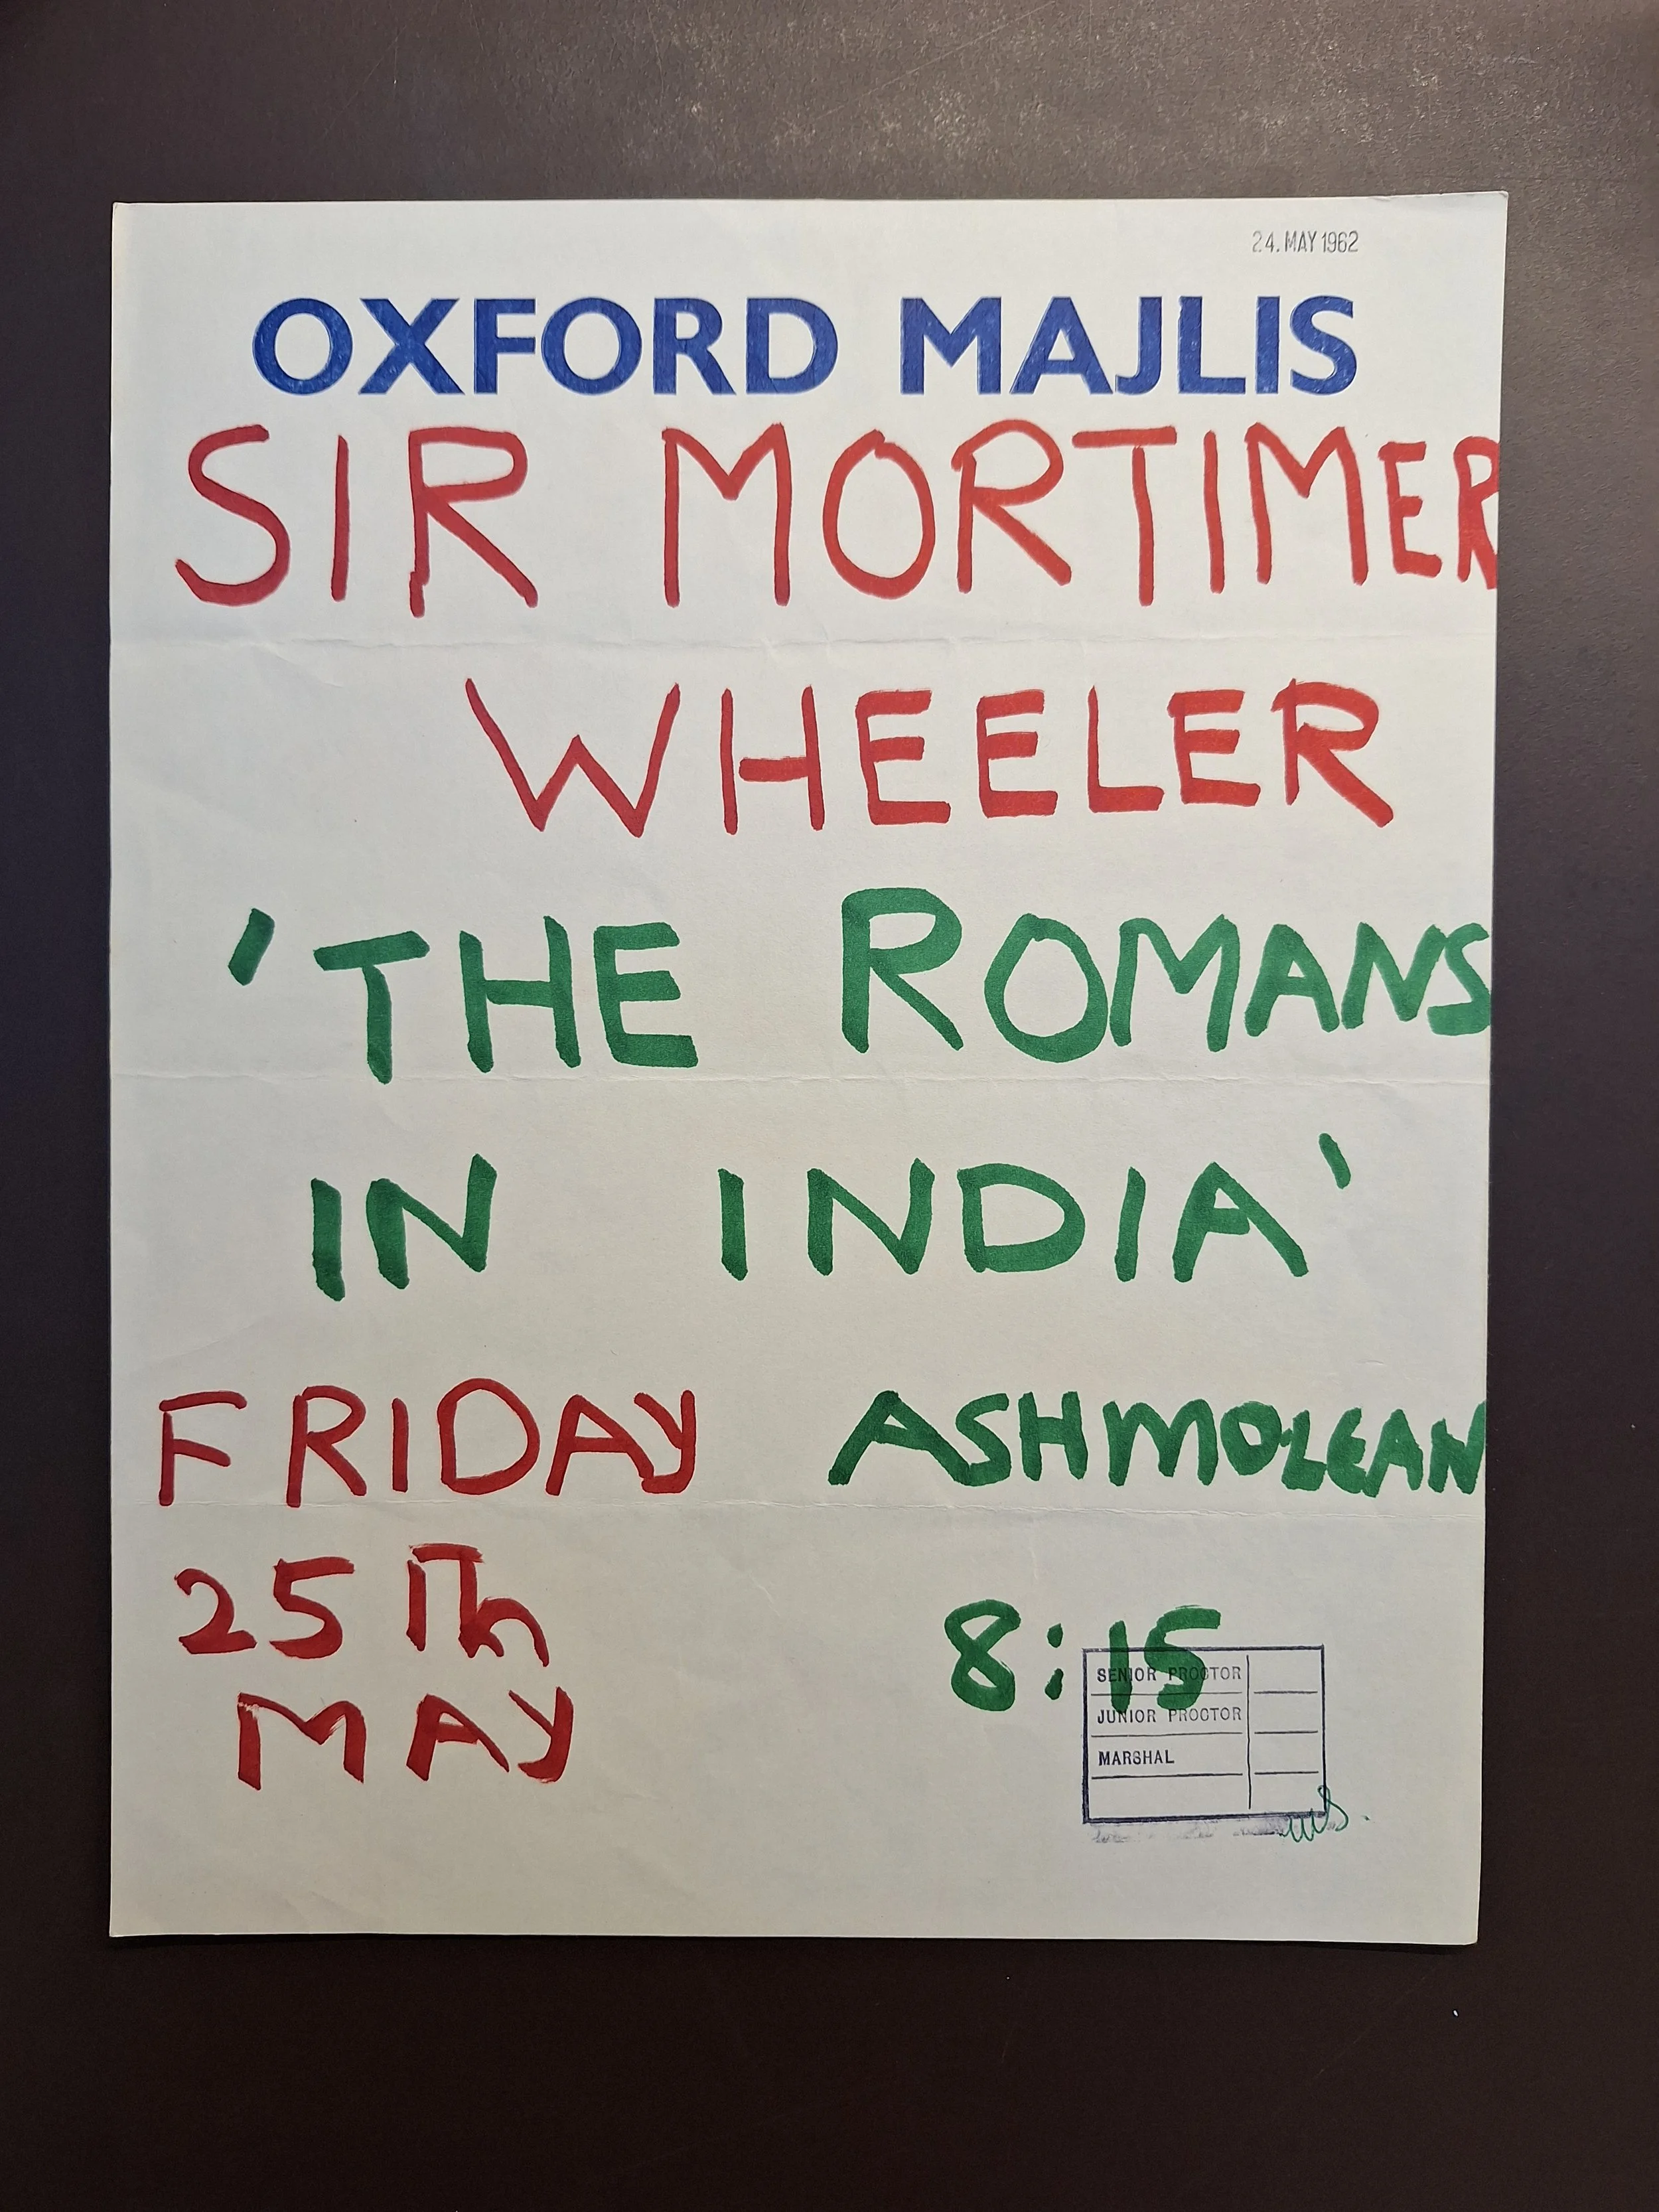 24. MAY 1962
OXFORD MAJLIS
SIR MORTIMER
WHEELER
'THE ROMANS
IN INDIA'
FRIDAY ASHMOLEAN
25Th
MAY
8:15
SENIOR PROCTOR
JUNIOR PROCTOR
MARSHAL